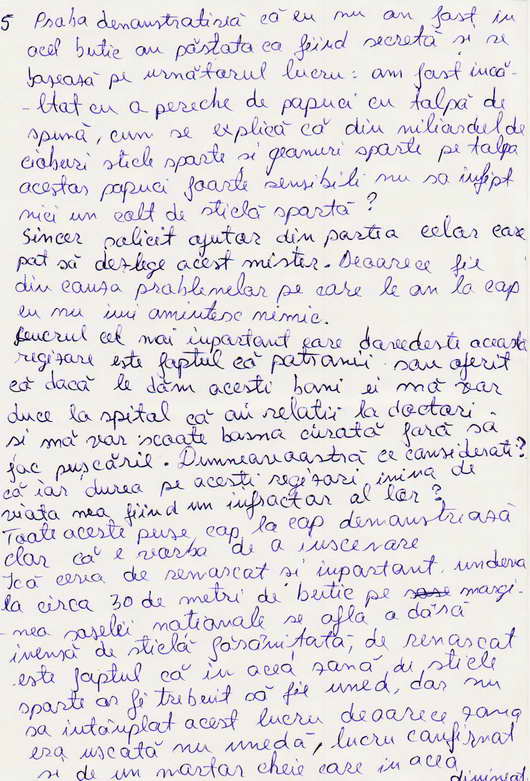 5 Proba demonstratisiă că eu nu am fost in
acel butic au păstrata ca fiind secretă si se
bazează pe următorul lucru: am fost incă-
-ltat cu a pereche de papuci cu talpă de
spumă, cum se explică că din miliardul de
cioburi sticle sparte și geamuri sparte pe talpa
acestor papuci foarte sensibili nu sa infipt
nici un colt de sticlă spartă?
Sincer solicit ajutor din partea celor care
pot să dezlege acest mister. Deoarece fie
din cauza problemelor pe care le am la cap
eu nu imi amintesc nimic.
Lucrul cel mai inportant care dovedeste această
regizare este faptul că patronii sau oferit
că dacă le dăm acesti bani ei mă vor
duce la spital că au relatii la doctori.
si mă vor scoate basma curată fară sa
fac pușcărie. Dumneavoastră ce considerati?
că iar durea pe acesti regizori inima de
viata mea fiind un infractor al lor?
Toate aceste puse cap la cap demonstrează
clar că e vorba de a inscenare
Ică ceva de remarcat si inportant. undeva
la circa 30 de metri de butic pe margi-
-nea soselei nationale se afla a dâră
imensă de sticlă fărâmitată, de remarcat
este faptul că in acea zonă, de sticle
sparte ar fi trebuit să fie umed, dar nu
sa intâmplat acest lucru deoarece zona
era uscată nu umedă, lucru confirmat
si de un martor cheie care in acea